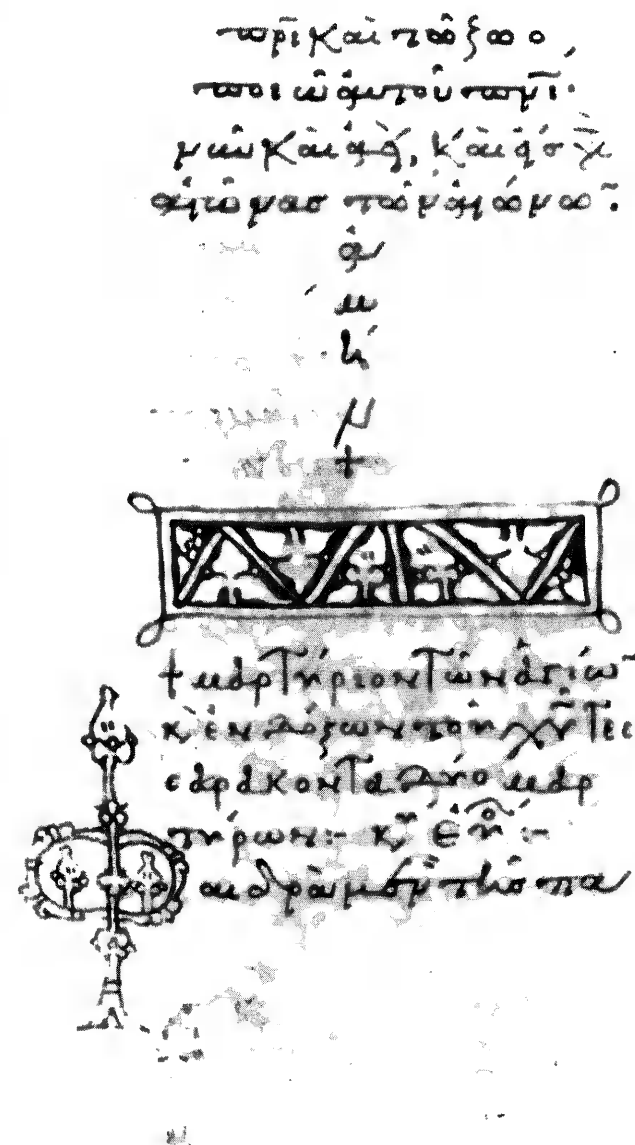 πρ̅ι καὶ τῶ ζωο
ποιῶ αὐτοῦ πν̅ι·
νῦν καὶ ἀεὶ, καὶ εἰς τ
αἰῶνας τῶν αἰώνων:
ἀ
μ
ὴ
ν
+
+ μαρτύριον τῶν ἁγίω̅
κ, ἐνδόξων τοῦ χ̅υ τεσ
σαράκοντα δύο μαρ
τύρων:-
τῆς πα